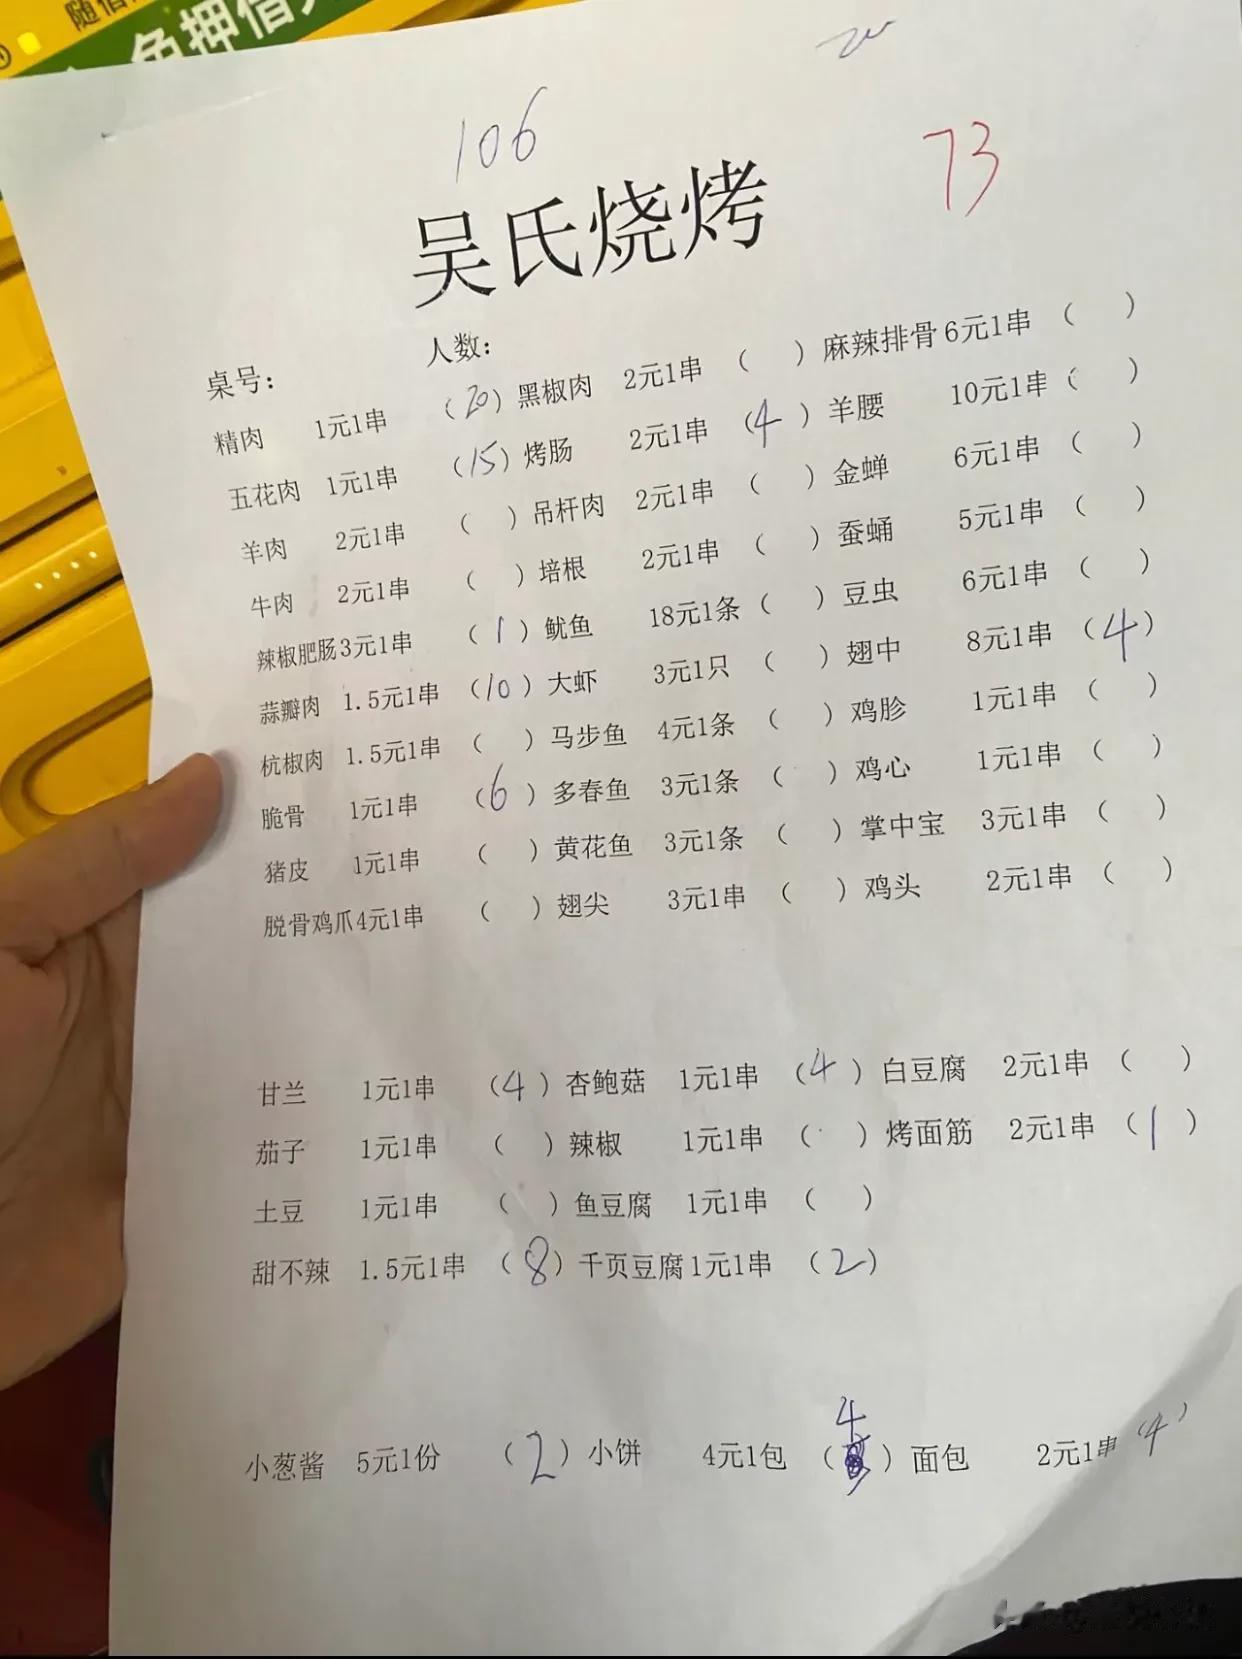 免押借
106
73
吴氏烧烤
桌号： 人数：
精肉 1元1串 （20）黑椒肉 2元1串 （ ）麻辣排骨 6元1串 （ ）
五花肉 1元1串 （15）烤肠 2元1串 （4）羊腰 10元1串 （ ）
羊肉 2元1串 （ ）吊杆肉 2元1串 （ ）金蝉 6元1串 （ ）
牛肉 2元1串 （ ）培根 2元1串 （ ）蚕蛹 5元1串 （ ）
辣椒肥肠3元1串 （1）鱿鱼 18元1条（ ）豆虫 6元1串 （ ）
蒜瓣肉 1.5元1串 （10）大虾 3元1只 （ ）翅中 8元1串 （4）
杭椒肉 1.5元1串 （ ）马步鱼 4元1条 （ ）鸡胗 1元1串 （ ）
脆骨 1元1串 （6）多春鱼 3元1条 （ ）鸡心 1元1串 （ ）
猪皮 1元1串 （ ）黄花鱼 3元1条 （ ）掌中宝 3元1串 （ ）
脱骨鸡爪4元1串 （ ）翅尖 3元1串 （ ）鸡头 2元1串 （ ）
甘兰 1元1串 （4）杏鲍菇 1元1串 （4）白豆腐 2元1串 （ ）
茄子 1元1串 （ ）辣椒 1元1串 （ ）烤面筋 2元1串 （1）
土豆 1元1串 （ ）鱼豆腐 1元1串 （ ）
甜不辣 1.5元1串 （8）千页豆腐1元1串 （2）
小葱酱 5元1份 （2）小饼 4元1包 （4）面包 2元1串（4）